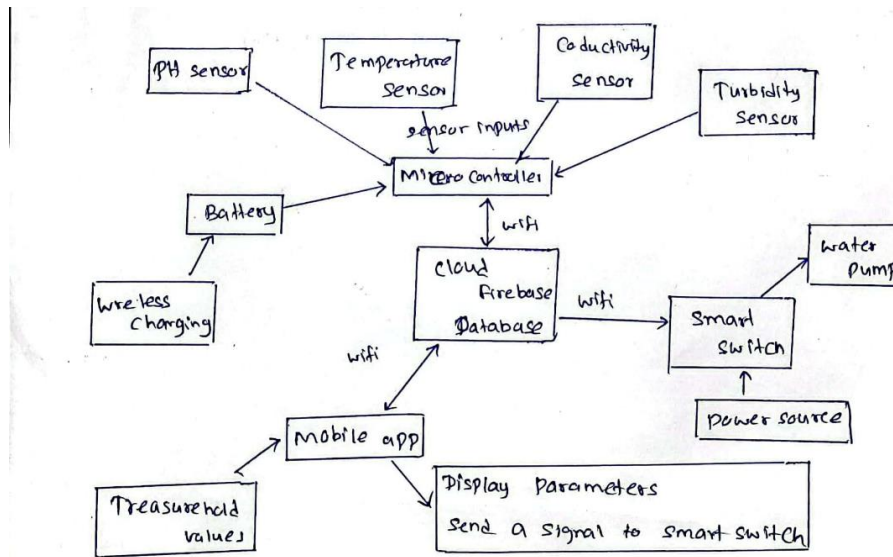 PH sensor
Temperature
sensor
Coductivity
sensor
Turbidity
sensor
sensor inputs
Micero Controller
Battery
wifi
Wreless
Charging
Cloud
Firebase
Database
wifi
Smart
switch
water
pump
wifi
Power source
Mobile app
Treasurehold
values
Display Parameters
Send a signal to smart switch